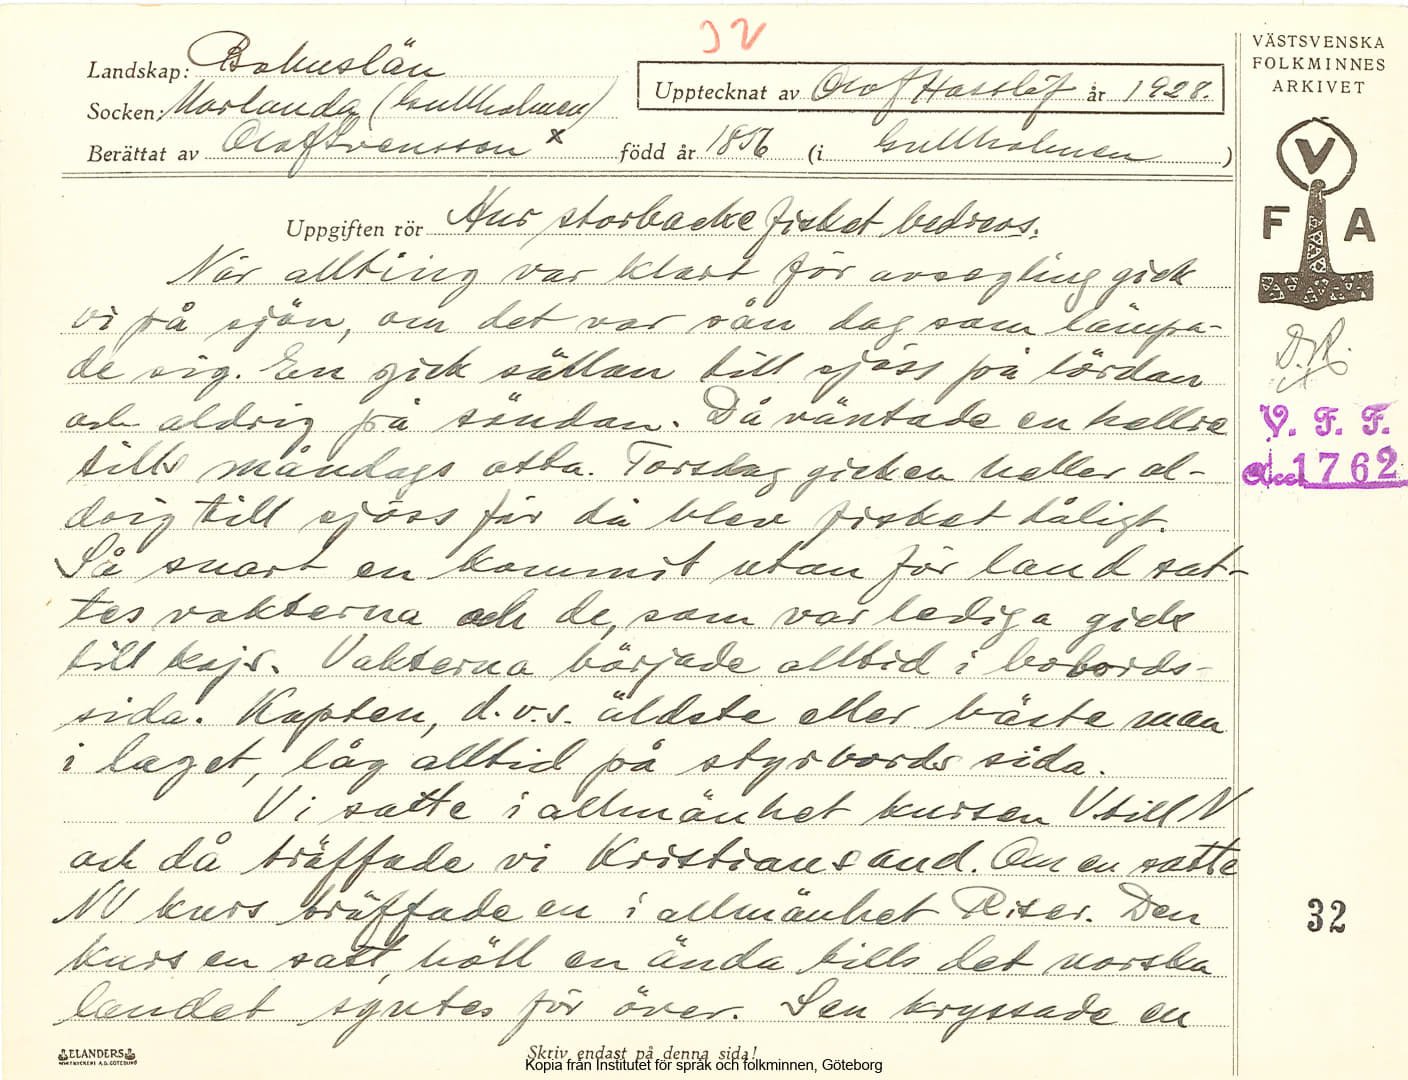 32
Landskap: Bohuslän
Socken: Morlanda (Gullholmen)
Berättat av Olof Svensson x
Upptecknat av Olof Hasslöf år 1928.
född år 1856 (i Gullholmen)
VÄSTSVENSKA
FOLKMINNES
ARKIVET
V
F A
Uppgiften rör Hur storbackefisket bedrevs.
När allting var klart för avsegling gick
vi på sjön, om det var sån dag som lämpa-
de sig. En gick sällan till sjöss på lördan
och aldrig på söndan. Då väntade en hellre
tills måndags otta. Torsdag gick en heller al-
drig till sjöss för då blev fisket dåligt.
Så snart en kommit utanför land sat-
tes vakterna och de, som var lediga gick
till kojs. Vakterna började alltid i babords-
sida. Kapten, d.v.s. äldste eller bäste man
i laget, låg alltid på styrbords sida.
Vi satte i allmänhet kursen V. till N
och då träffade vi Kristiansand. Om en satte
NV kurs träffade en i allmänhet Riser. Den
kurs en satt, höll en ända tills det norska
landet syntes för över. Sen kryssade en
D.R.
V. F. F.
Acc. 1762
32
ELANDERS
Skriv endast på denna sida!
Kopia från Institutet för språk och folkminnen, Göteborg